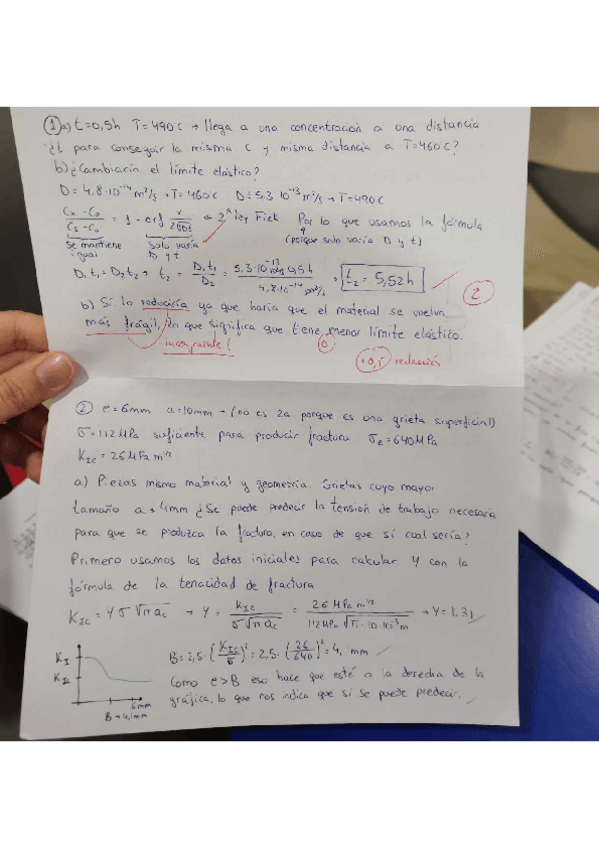 ① a) t=0,5h T=490°C → llega a una concentración a una distancia
¿t para conseguir la misma C y misma distancia a T=460°C?
b) ¿Cambiaría el límite elástico?
D = 4,8·10⁻¹⁴ m²/s → T=460°C D=5,3·10⁻¹³ m²/s → T=490°C
(Cx - C0)/(Cs - C0) = 1 - erf x/(2√Dt) → 2ª ley Fick Por lo que usamos la fórmula
(porque solo varía D y t)
se mantiene igual
solo varía D y t
D₁t₁ = D₂t₂ → t₂ = D₁t₁/D₂ = 5,3·10⁻¹³ m²/s 0,5h / 4,8·10⁻¹⁴ m²/s → t₂ = 5,52h
2
b) Sí lo reduciría ya que haría que el material se vuelva
más frágil, lo que significa que tiene menor límite elástico.
incongruente!
0
+0,5 redacción
② e=6mm a=10mm → (no es 2a porque es una grieta superficial)
σ=112 MPa suficiente para producir fractura σe=640MPa
KIC = 26 MPa m^1/2
a) Piezas mismo material y geometría. Grietas cuyo mayor
tamaño a → 4mm ¿Se puede predecir la tensión de trabajo necesaria
para que se produzca la fractura, en caso de que sí cual sería?
Primero usamos los datos iniciales para calcular Y con la
fórmula de la tenacidad de fractura
KIC = Yσ√πac → Y = KIC/(σ√πac) = 26 MPa m^1/2 / (112 MPa √π·10·10⁻³m) → Y=1,31
B = 2,5·(KIC/σ)² = 2,5·(26/640)² = 4, mm
Como e>B eso hace que esté a la derecha de la
gráfica, lo que nos indica que sí se puede predecir.
6mm
B → 4,1mm